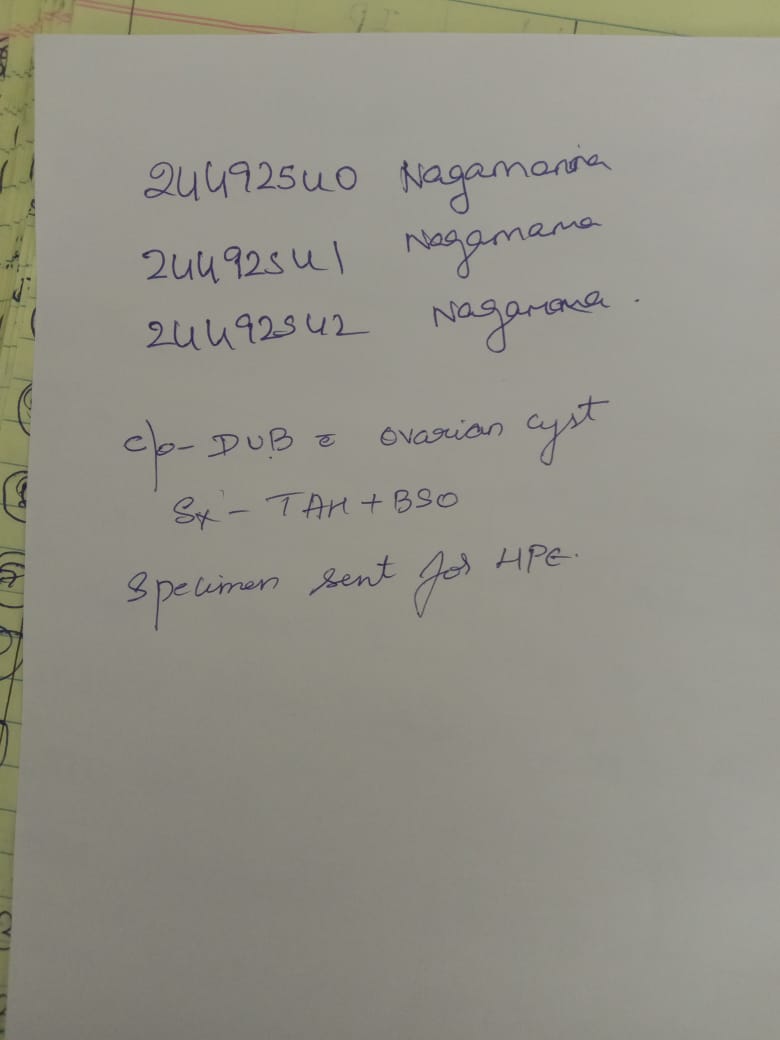 24492540 Nagamania
24492541 Nagamama
24492542 Nagamama.
c/o- DUB c̄ ovarian cyst
Sx - TAH + BSO
Specimen sent for HPE.